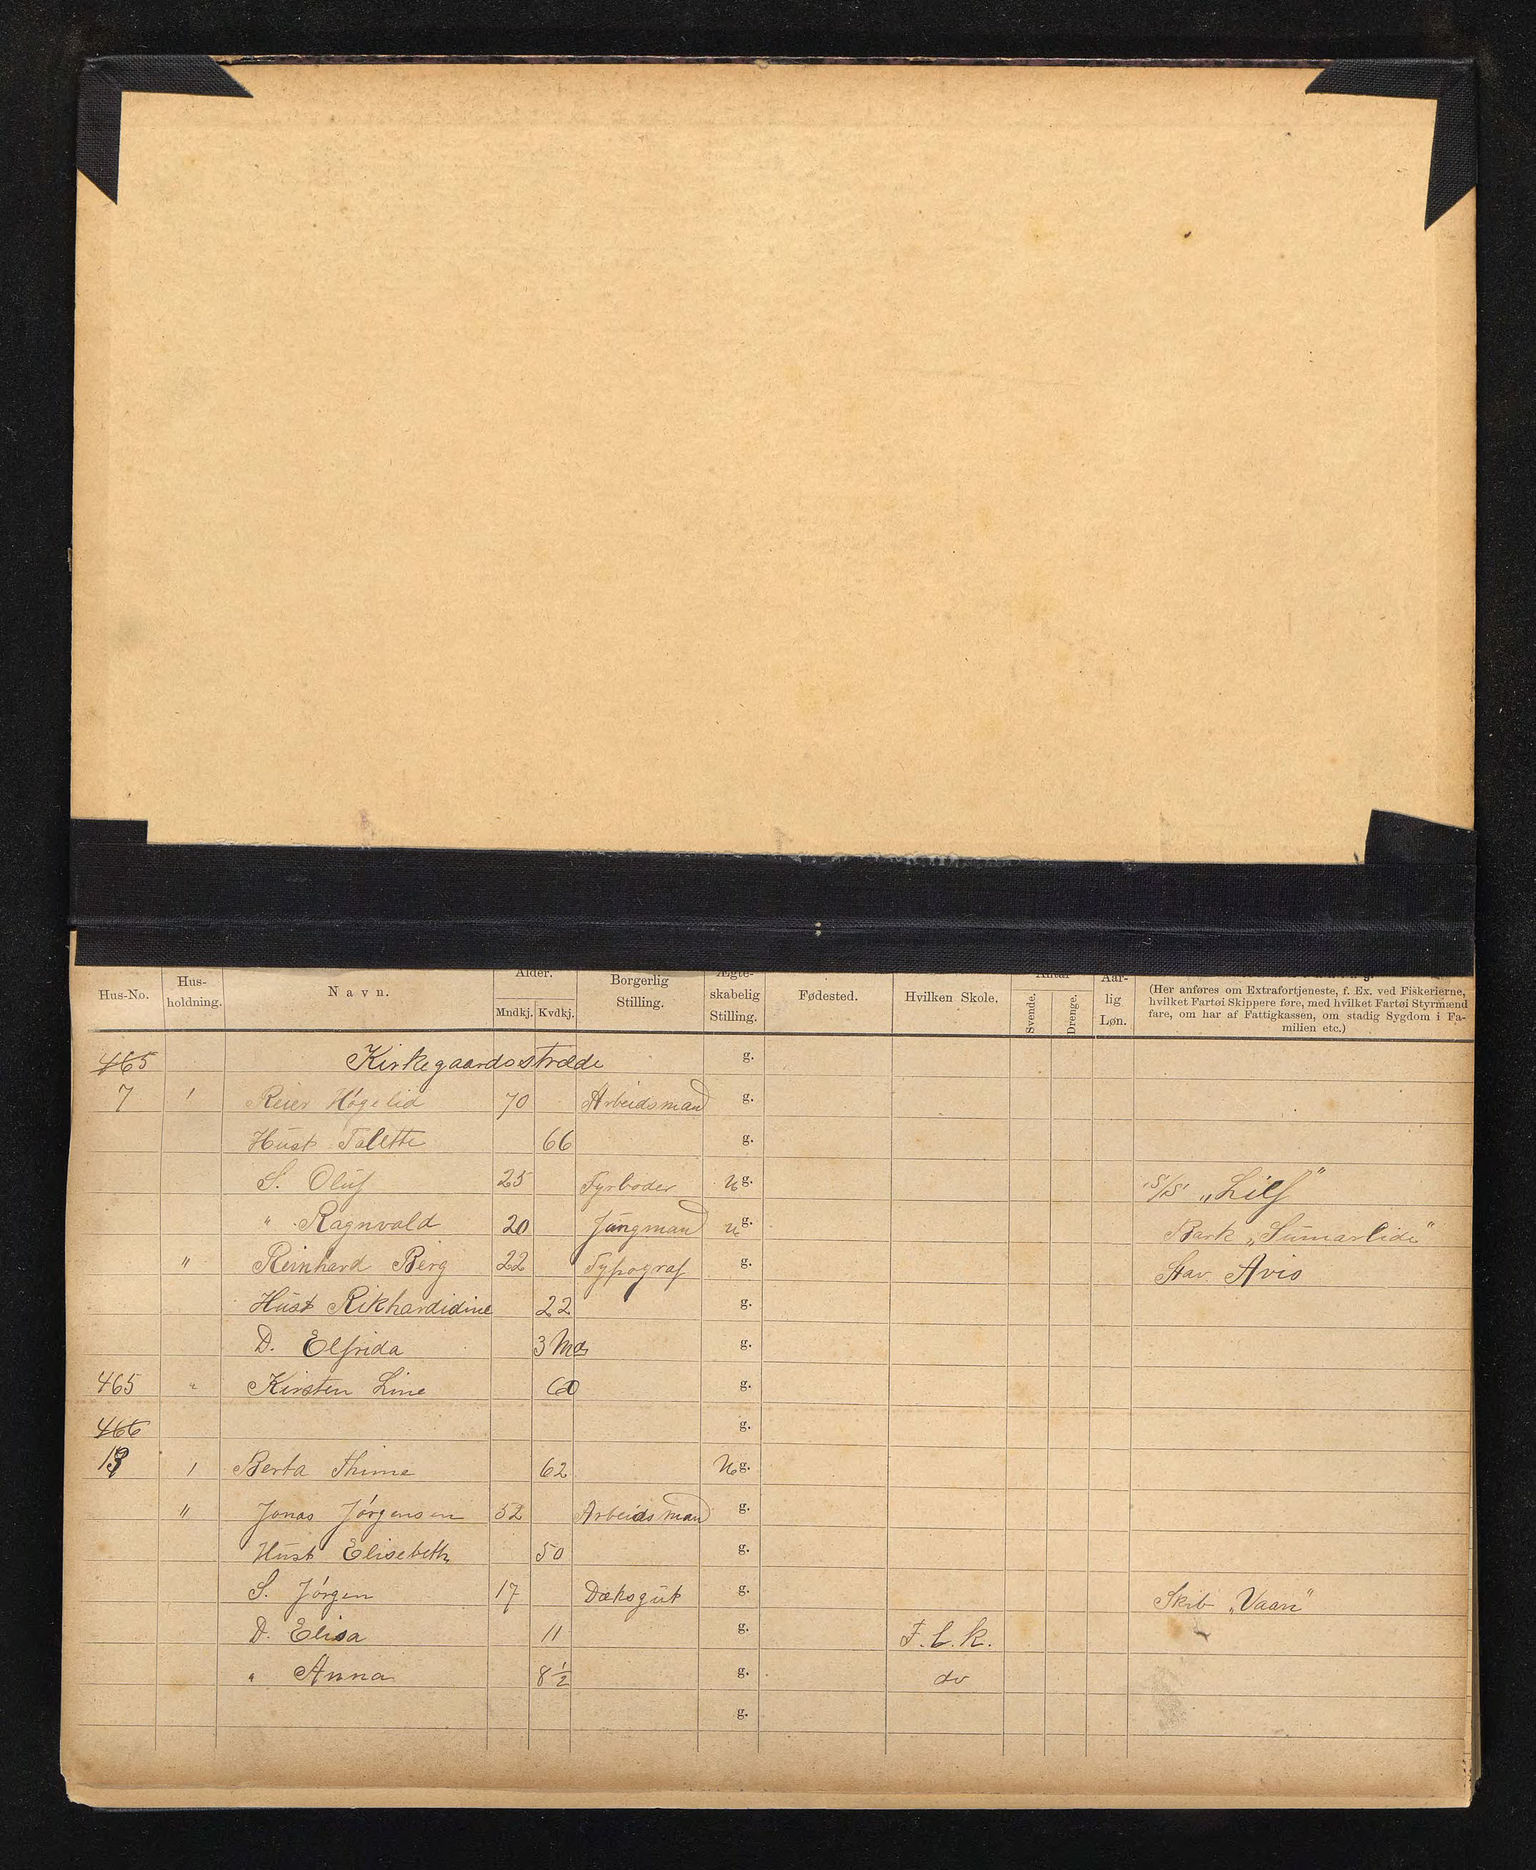 Hus-No. Hus-holdning. Navn. Alder. Mndkj. Kvdkj. Borgerlig Stilling. Ægte-skabelig Stilling. Fødested. Hvilken Skole. Antal Svende. Drenge. Aar-lig Løn. (Her anføres om Extrafortjeneste, f. Ex. ved Fiskerierne, hvilket Fartøi Skippere føre, med hvilket Fartøi Styrmænd fare, om har af Fattigkassen, om stadig Sygdom i Fa-milien etc.)
465 Kirkegaardsstræde g.
7 1 Reier Høgelid 70 Arbeidsmand g.
Hust Talette 66 g.
S. Oluf 25 Fyrbøder Ug. S/S "Lilf"
" Ragnvald 20 Jungmand ug. Bark "Sumarlide"
" Reinhard Berg 22 Typograf g. Stav. Avis
Hust Rikhardidine 22 g.
D. Elfrida 3 Md g.
465 " Kirsten Line 60 g.
466 g.
13 1 Berta Thime 62 Ug.
" Jonas Jørgensen 52 Arbeidsmand g.
Hust Elisebeth 50 g.
S. Jørgen 17 Dæksgut g. Skib "Vaan"
D. Elisa 11 g. F. l. k.
" Anna 8 1/2 g. do
g.